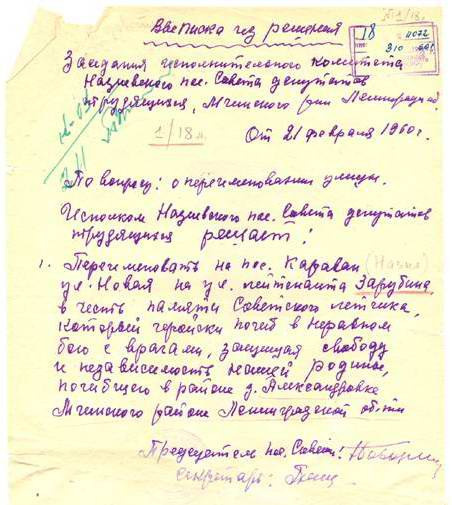 Выписка из решения
18
Заседания исполнительного комитета
Назиевского пос. Совета депутатов
трудящихся, Мгинского р-на Ленинградской
1/18 л.
От 21 февраля 1960 г.
По вопросу: о переименовании улицы.
Исполком Назиевского пос. Совета депутатов
трудящихся решает:
1. Переименовать на пос. Караван (Назия)
ул. Новая на ул. лейтенанта Зарубина
в честь памяти Советского летчика,
который геройски погиб в неравном
бою с врагами, защищая свободу
и независимость нашей родины,
погибшего в районе д. Александровка
Мгинского района Ленинградской обл-ти
Председатель пос. Совета:
Секретарь: